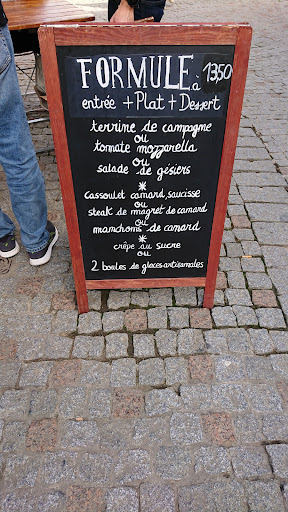 FORMULE à 13,50
entrée + Plat + Dessert
terrine de campagne
ou
tomate mozzarella
ou
salade de gésiers
*
cassoulet canard, saucisse
ou
steak de magret de canard
ou
manchons de canard
*
crêpe au sucre
ou
2 boules de glaces artisanales